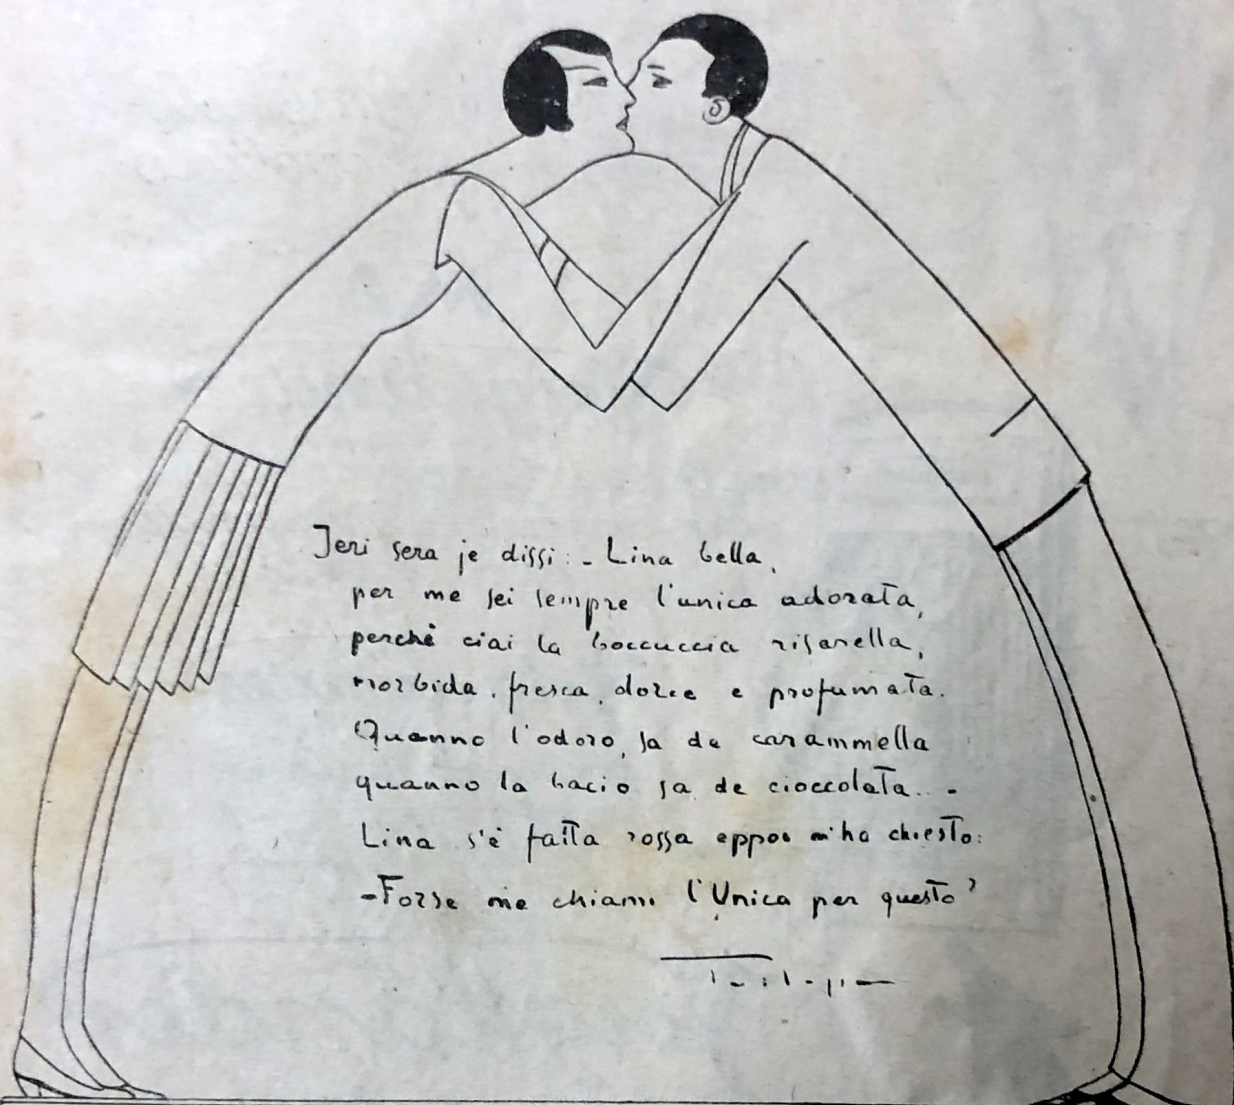 Jeri sera je dissi: - Lina bella,
per me sei sempre l'unica adorata,
perchè ciai la boccuccia risarella,
morbida, fresca, dolce e profumata.
Quanno l'odoro, sa de carammella
quanno la bacio sa de cioccolata.. -
Lina s'è fatta rossa eppoi m'ha chiesto:
- Forse me chiami l'Unica per questo?